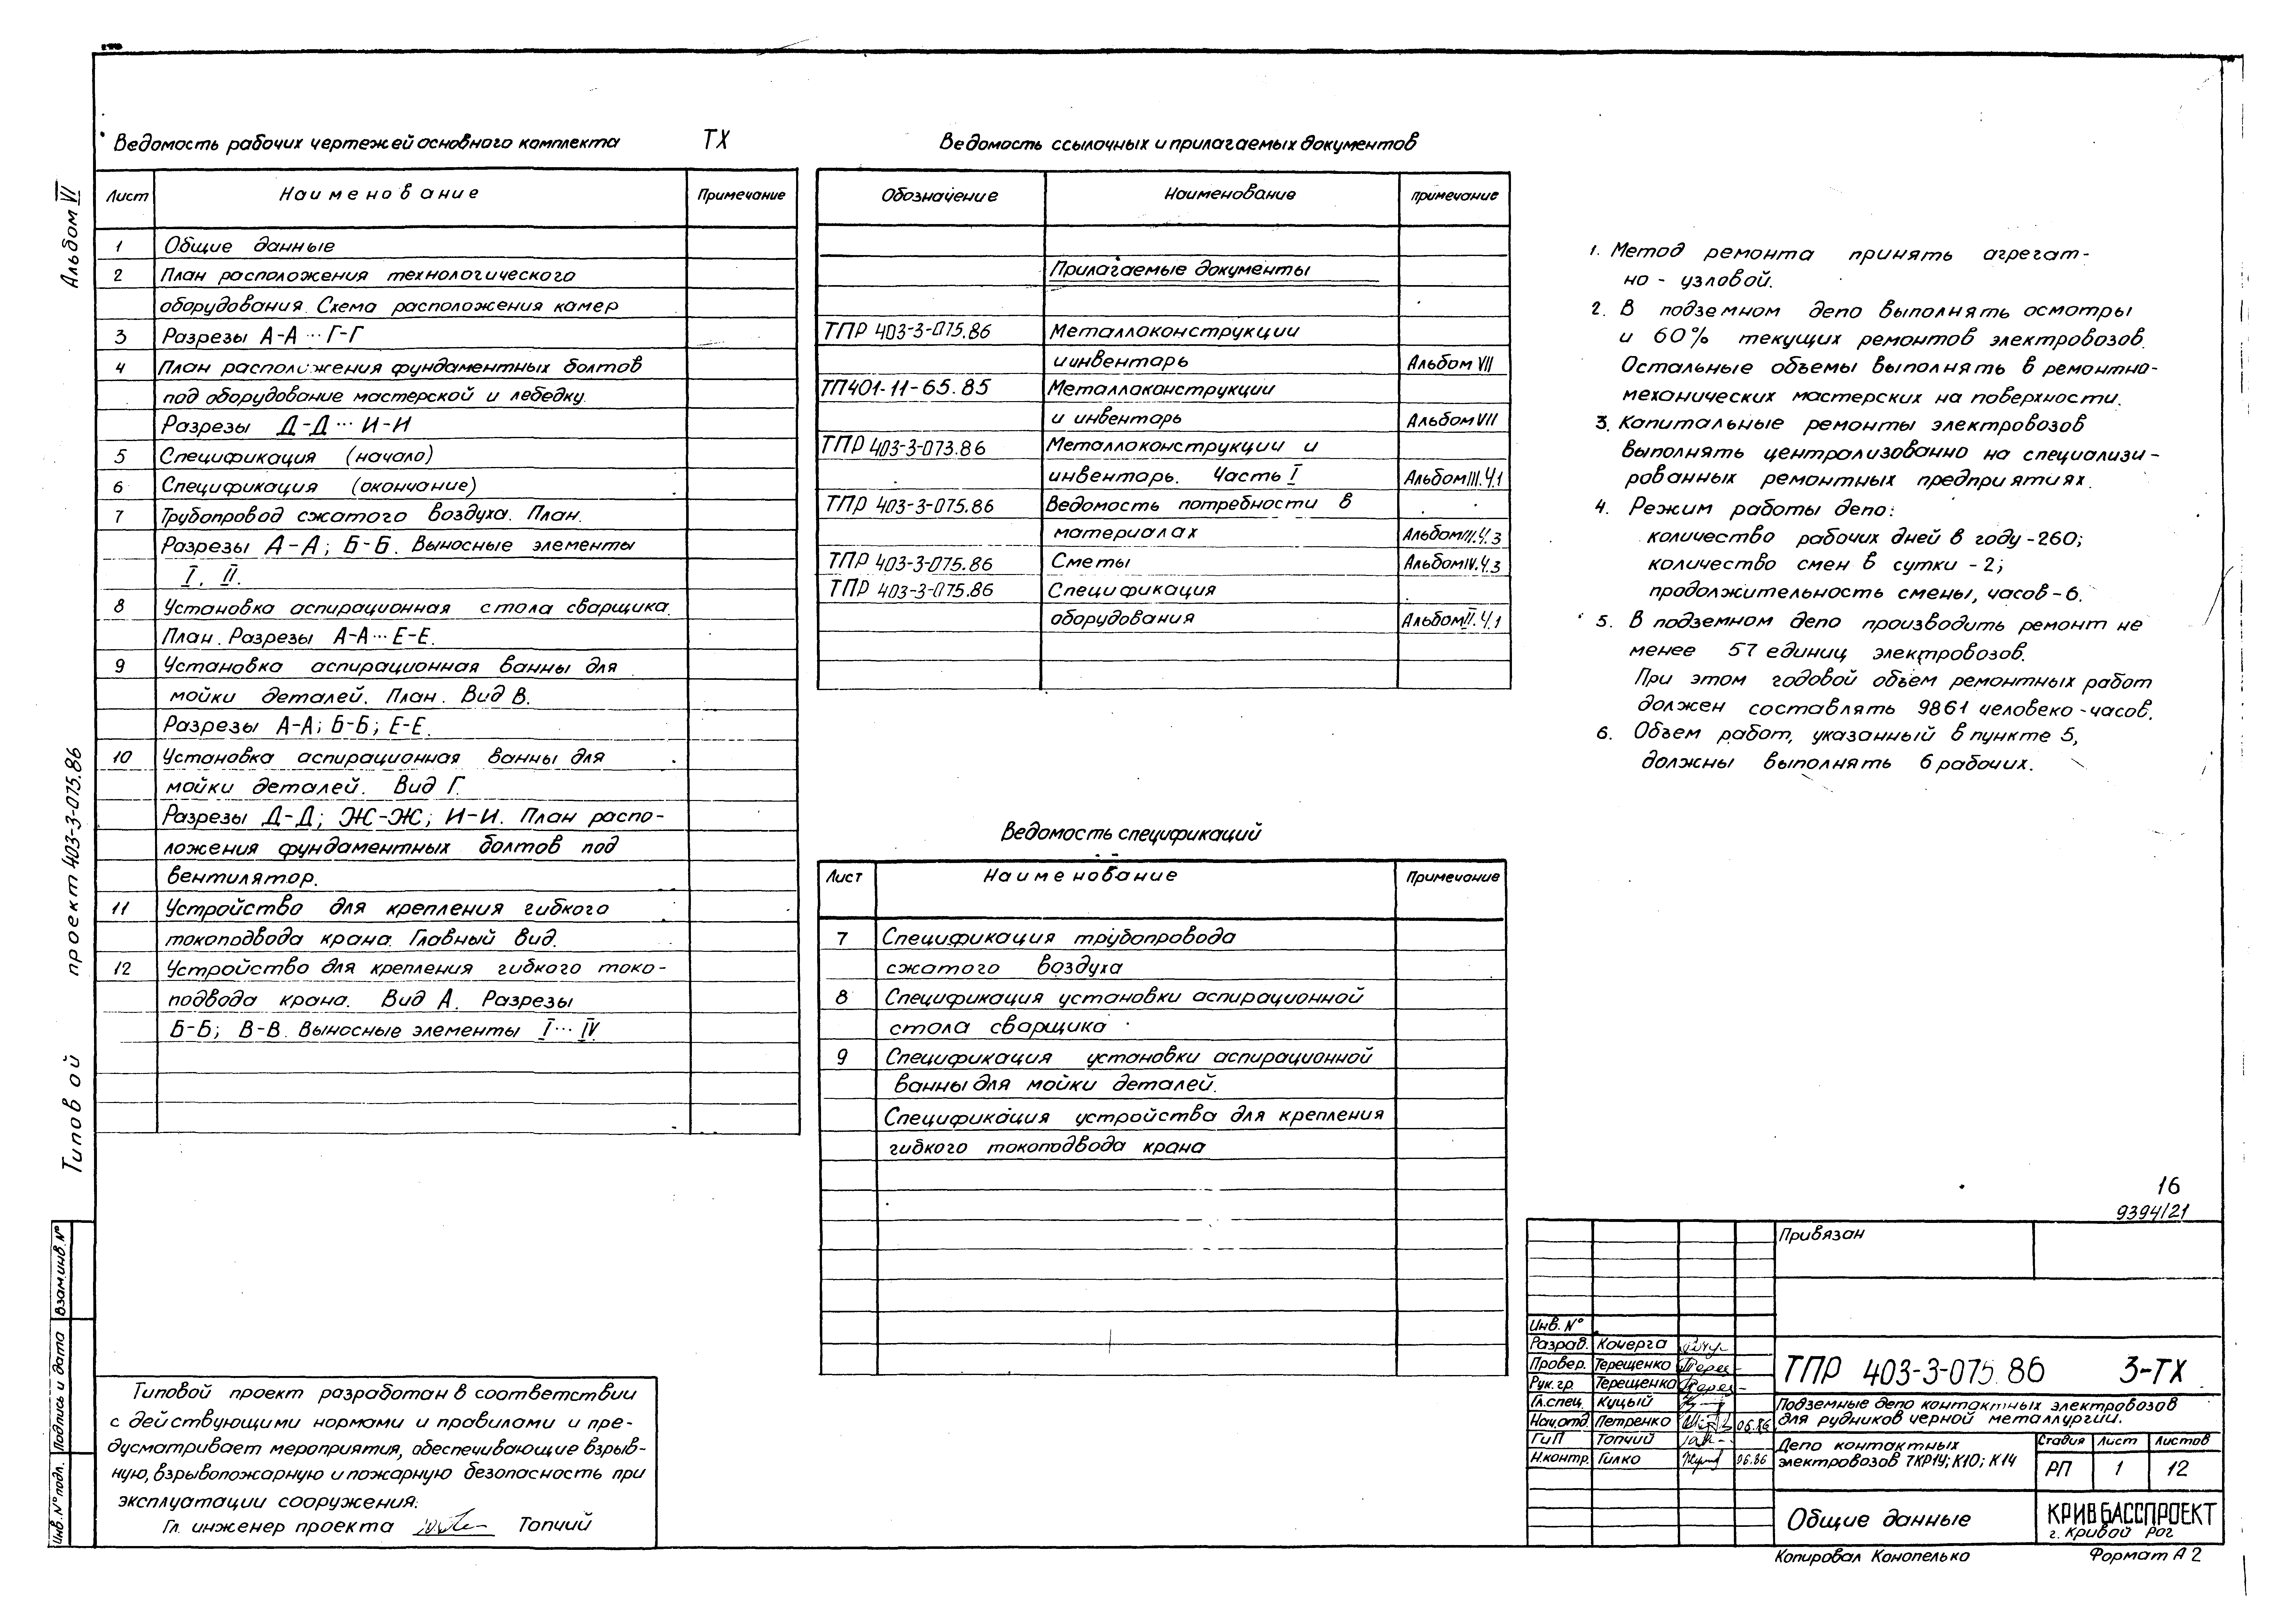 Альбом VI
Типовой проект 403-3-075.86
Взам.инв.N°
Подпись и дата
Инв.N°подл.
Ведомость рабочих чертежей основного комплекта ТХ
Лист Наименование Примечание
1 Общие данные
2 План расположения технологического
оборудования. Схема расположения камер
3 Разрезы А-А ··· Г-Г
4 План расположения фундаментных болтов
под оборудование мастерской и лебедку.
Разрезы Д-Д ··· И-И
5 Спецификация (начало)
6 Спецификация (окончание)
7 Трубопровод сжатого воздуха. План.
Разрезы А-А; Б-Б. Выносные элементы
I. II.
8 Установка аспирационная стола сварщика.
План. Разрезы А-А ··· Е-Е.
9 Установка аспирационная ванны для
мойки деталей. План. Вид В.
Разрезы А-А; Б-Б; Е-Е.
10 Установка аспирационная ванны для
мойки деталей. Вид Г.
Разрезы Д-Д; Ж-Ж; И-И. План распо-
ложения фундаментных болтов под
вентилятор.
11 Устройство для крепления гибкого
токоподвода крана. Главный вид.
12 Устройство для крепления гибкого токо-
подвода крана. Вид А. Разрезы
Б-Б; В-В. Выносные элементы I ··· IV
Типовой проект разработан в соответствии
с действующими нормами и правилами и пре-
дусматривает мероприятия, обеспечивающие взрыв-
ную, взрывопожарную и пожарную безопасность при
эксплуатации сооружения.
Гл. инженер проекта Топчий
Ведомость ссылочных и прилагаемых документов
Обозначение Наименование примечание
Прилагаемые документы
ТПР 403-3-075.86 Металлоконструкции
и инвентарь Альбом VII
ТП401-11-65.85 Металлоконструкции
и инвентарь Альбом VII
ТПР 403-3-073.86 Металлоконструкции и
инвентарь. Часть I Альбом III.Ч.1
ТПР 403-3-075.86 Ведомость потребности в
материалах Альбом III.Ч.3
ТПР 403-3-075.86 Сметы Альбом IV.Ч.3
ТПР 403-3-075.86 Спецификация
оборудования Альбом II.Ч.1
Ведомость спецификаций
Лист Наименование Примечание
7 Спецификация трубопровода
сжатого воздуха
8 Спецификация установки аспирационной
стола сварщика
9 Спецификация установки аспирационной
ванны для мойки деталей.
Спецификация устройства для крепления
гибкого токоподвода крана
1. Метод ремонта принять агрегат-
но - узловой.
2. В подземном депо выполнять осмотры
и 60% текущих ремонтов электровозов.
Остальные объемы выполнять в ремонтно-
механических мастерских на поверхности.
3. Капитальные ремонты электровозов
выполнять централизованно на специализи-
рованных ремонтных предприятиях.
4. Режим работы депо:
количество рабочих дней в году - 260;
количество смен в сутки - 2;
продолжительность смены, часов - 6.
5. В подземном депо производить ремонт не
менее 57 единиц электровозов.
При этом годовой объем ремонтных работ
должен составлять 9861 человеко-часов.
6. Объем работ, указанный в пункте 5,
должны выполнять 6 рабочих.
16
9394/21
Привязан
Инв. N°
Разраб. Кочерга
Провер. Терещенко
Рук.гр. Терещенко
Гл.спец. Куцый
Нач.отд Петренко 06.86
ГиП Топчий
Н.контр. Гилко 06.86
ТПР 403-3-075.86 3-ТХ
Подземные депо контактных электровозов
для рудников черной металлургии.
Депо контактных
электровозов 7КР1У; К10; К14
Стадия Лист Листов
РП 1 12
Общие данные
КРИВБАССПРОЕКТ
г. Кривой Рог
Копировал Конопелько Формат А2